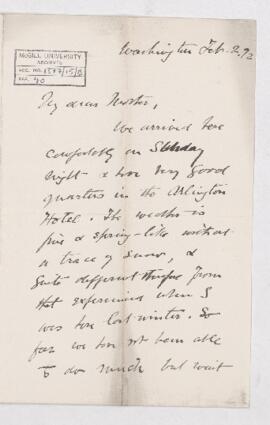 McGILL UNIVERSITY
ARCHIVES
ACC. NO. 1577/15/
REF. 40
Washington Feb. 2.
My dear
We arrived here
comfortably on Sunday
night & have very good
quarters in the Arlington
Hotel. The weather is
fine & spring-like without
a trace of snow, &
quite different from
that experienced when I
was here last winter. So
far we have not been able
to do much but wait